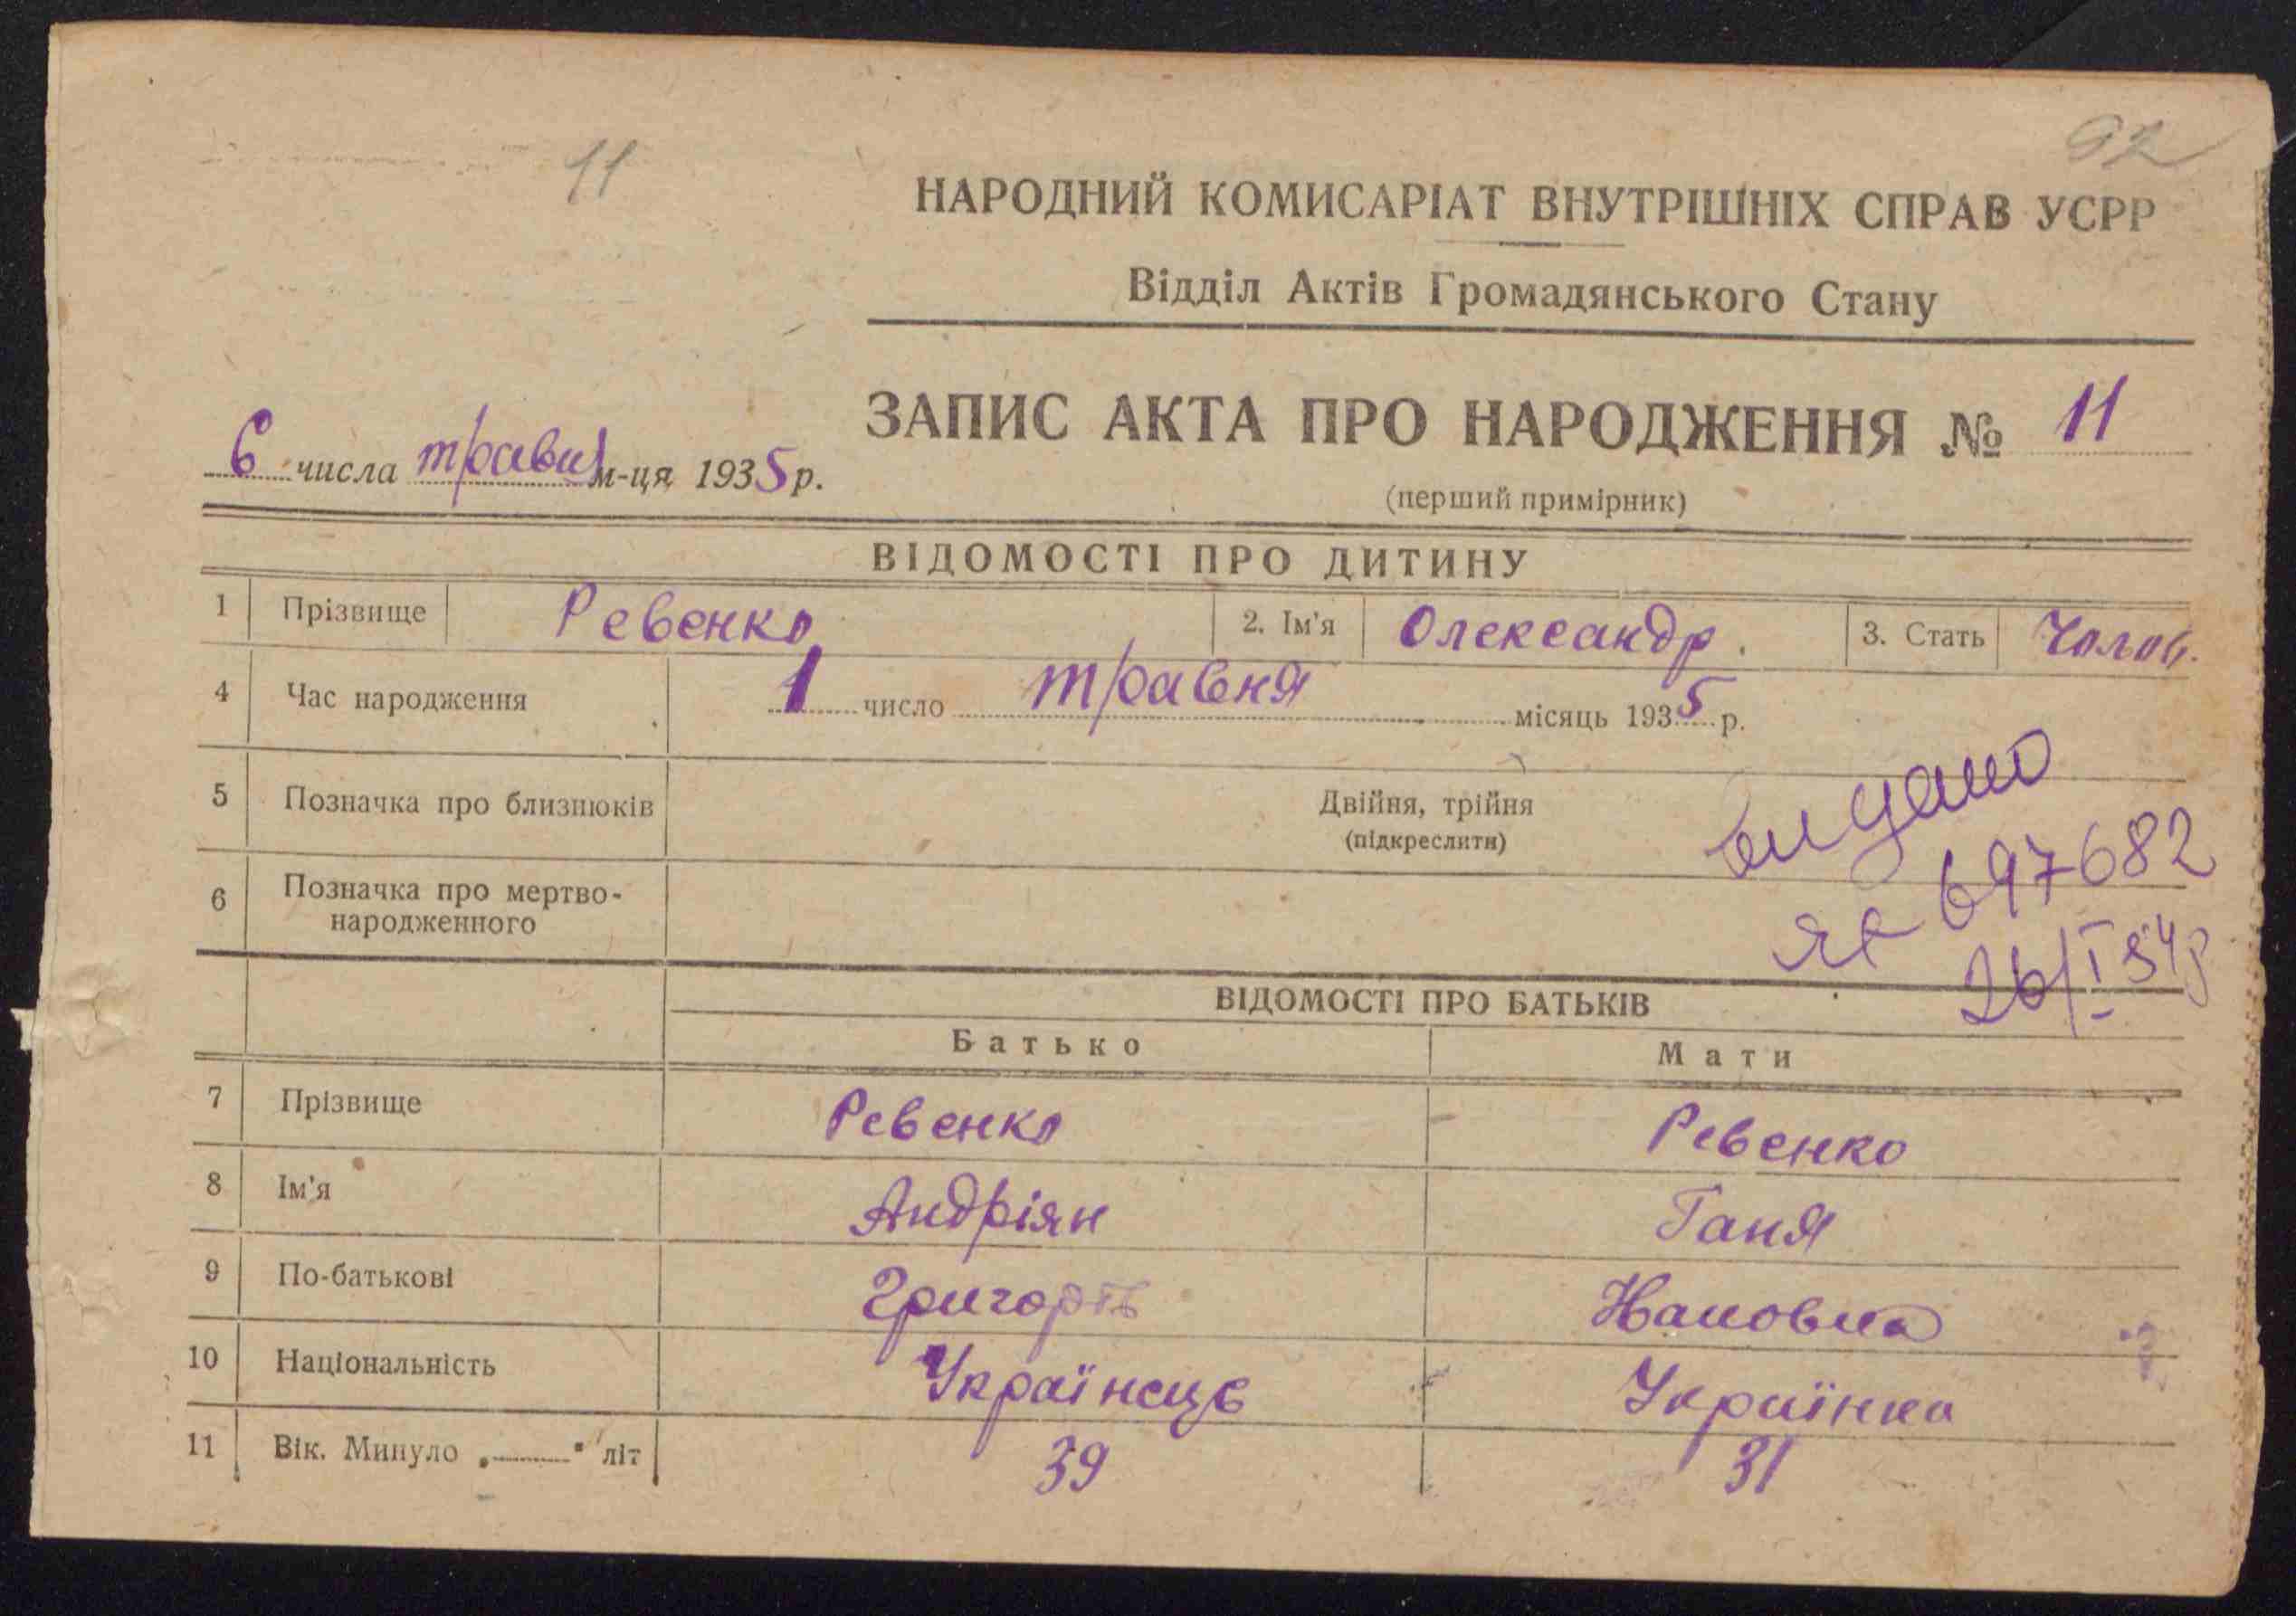 11
92
НАРОДНИЙ КОМИСАРІАТ ВНУТРІШНІХ СПРАВ УСРР
Відділ Актів Громадянського Стану
ЗАПИС АКТА ПРО НАРОДЖЕННЯ № 11
6 числа травня м-ця 1935 р.
(перший примірник)
ВІДОМОСТІ ПРО ДИТИНУ
1 Прізвище Ревенко 2. Ім'я Олександр. 3. Стать Чолов.
4 Час народження 1 число травня місяць 1935 р.
5 Позначка про близнюків Двійня, трійня
(підкреслити)
видано
6 Позначка про мертво-
народженного
697682
26/I 54р
ВІДОМОСТІ ПРО БАТЬКІВ
Батько Мати
7 Прізвище Ревенко Ревенко
8 Ім'я Андріян Ганя
9 По-батькові
10 Національність Українець Українка
11 Вік. Минуло „ " літ 39 31